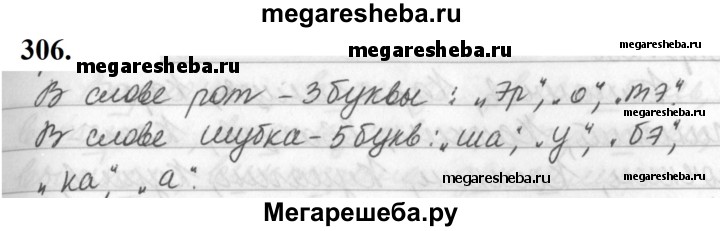 megaresheba.ru
306.
megaresheba.ru
megaresheba.ru
megaresheba.ru
В слове рот – 3 буквы : „эр“, „о“, „тэ“.
В слове шубка – 5 букв : „ша“, „у“, „бэ“,
„ка“, „а“.
megaresheba.ru
megaresheba.ru
Мегарешеба.ру